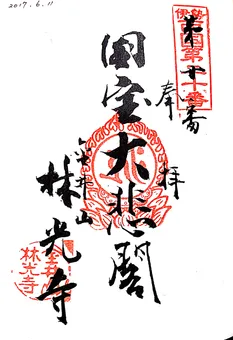 2017. 6. 11
伊勢
奉拝
国宝大悲閣
金井山
林光寺
林光寺